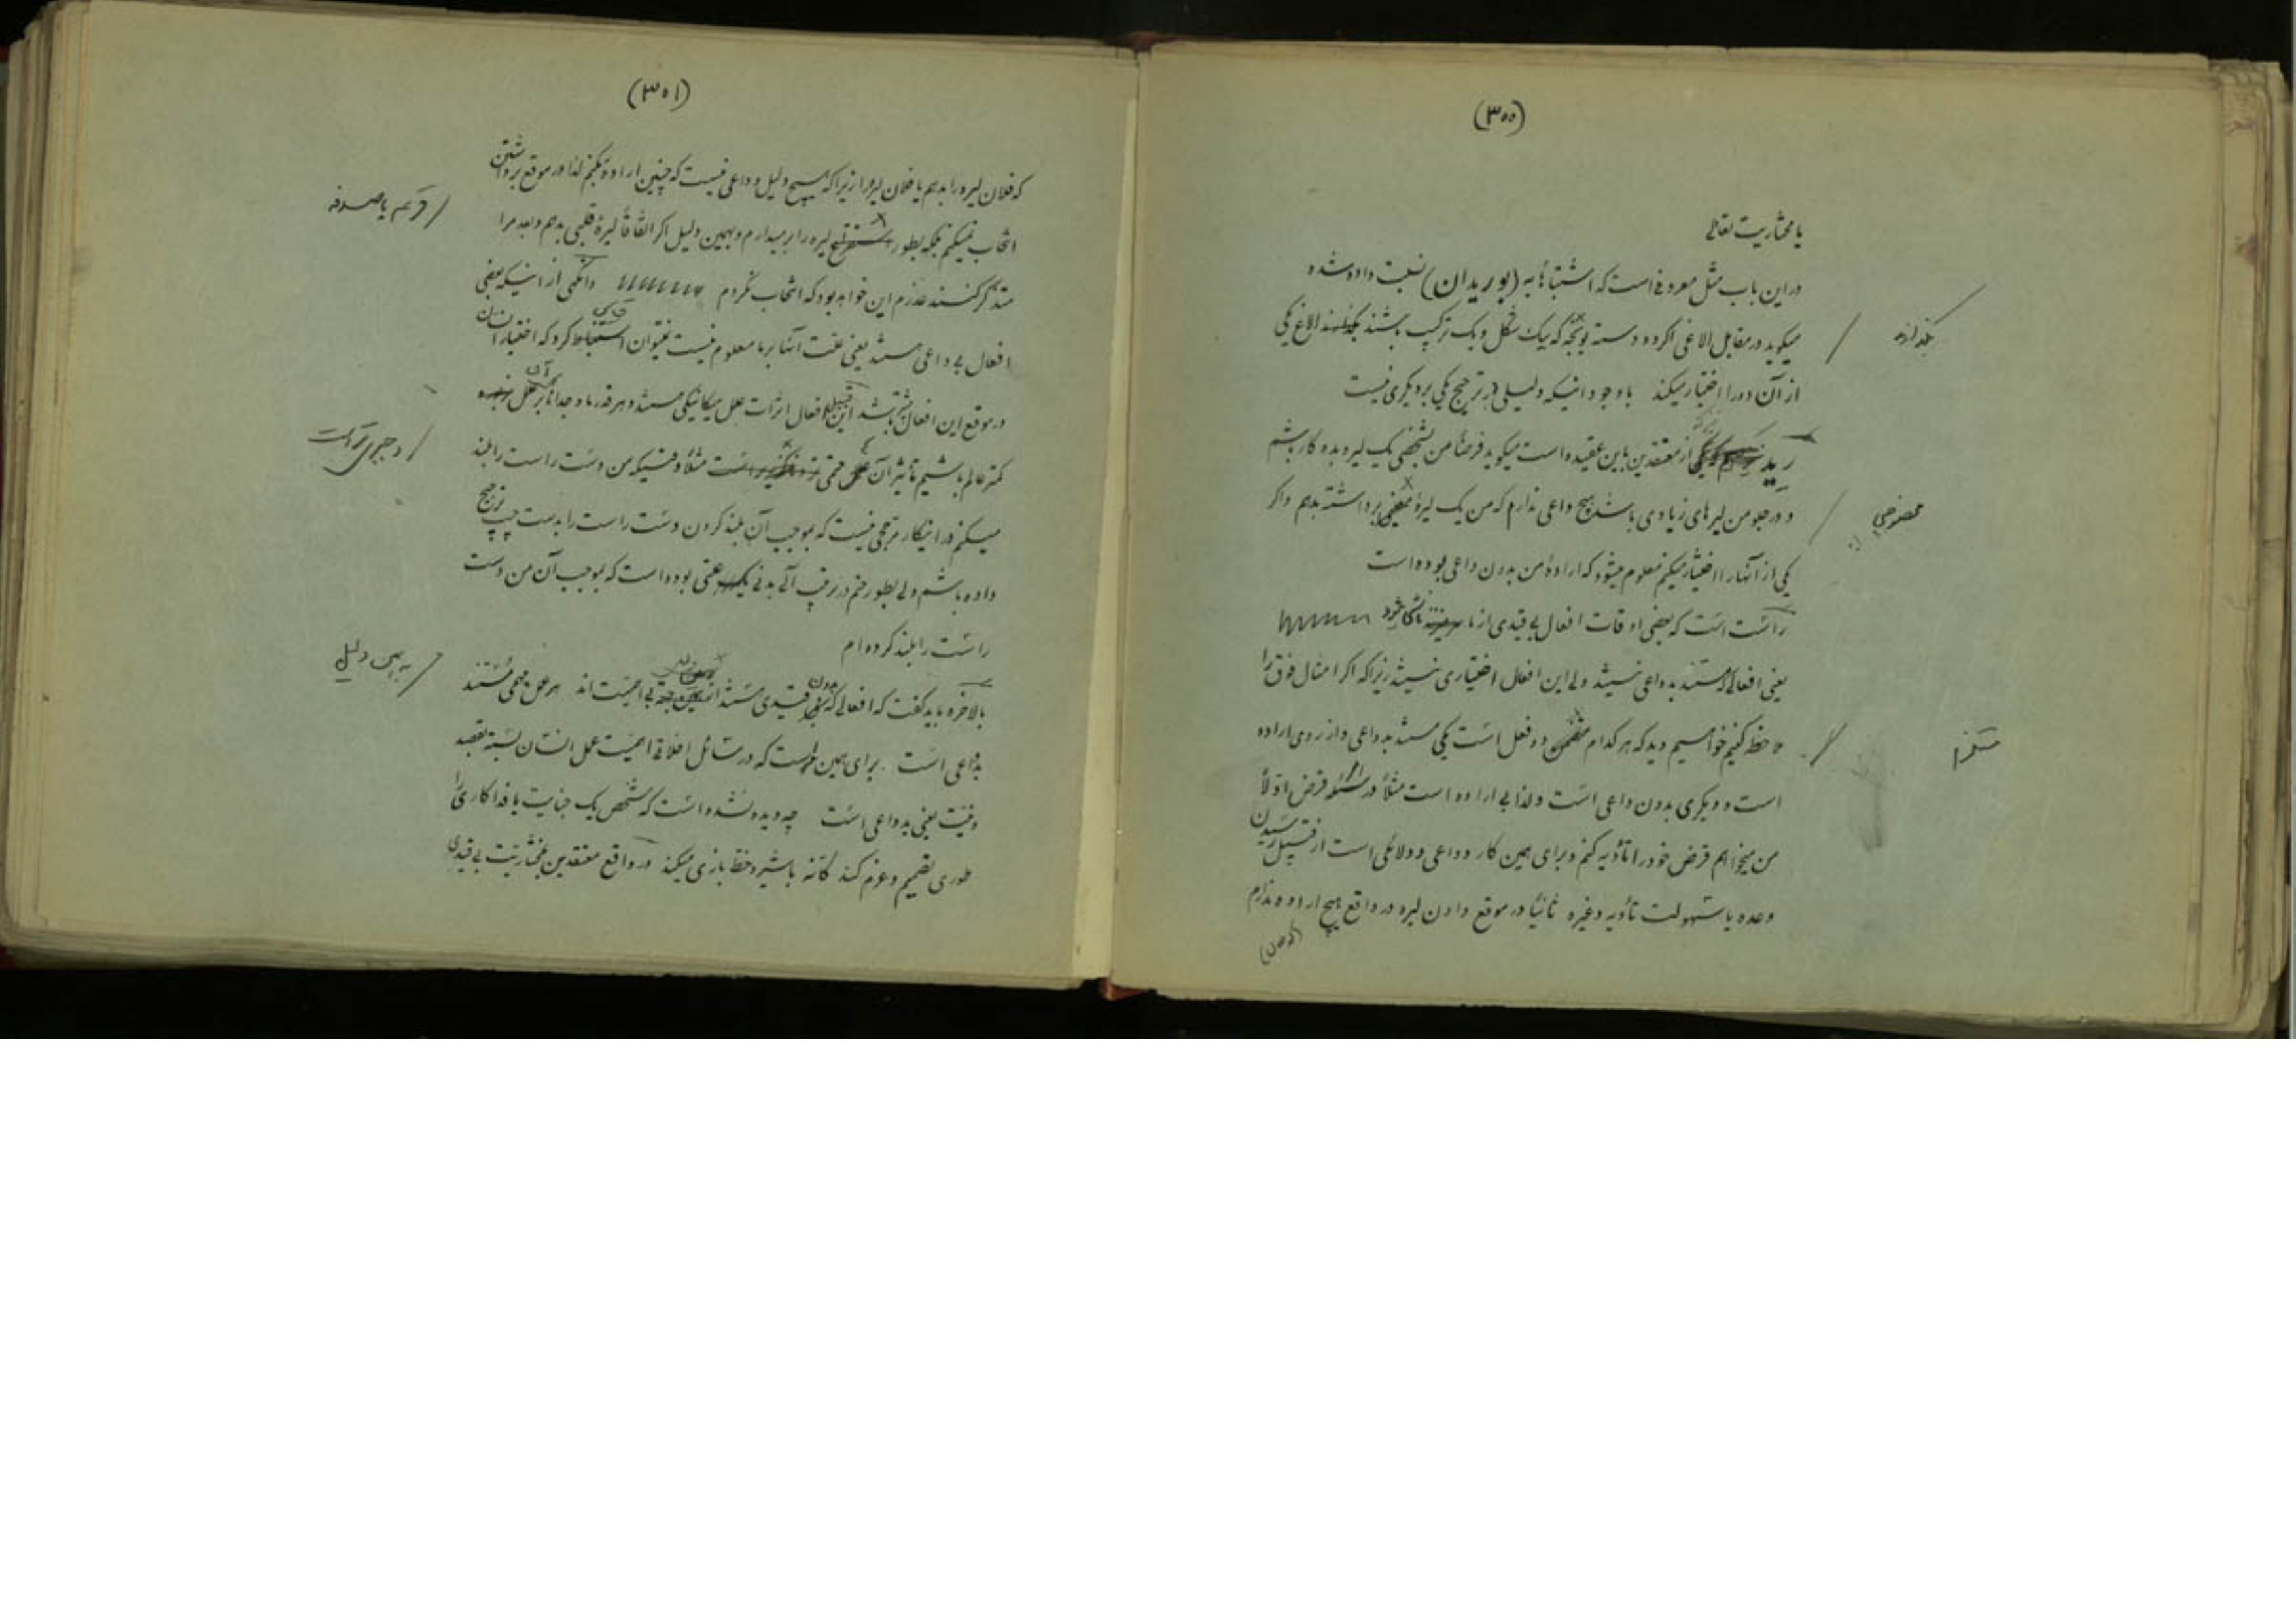 (۳۰۰)
یا مختاریت تعادلی
در این باب مثل معروفی است که اشتباهاً به (بوریدان) نسبت داده شده
میگوید در مقابل الاغی اگر دو دسته یونجه که بیک شکل و یک ترکیب باشند بگذارند الاغ یکی
بگذارند
از آن دو را اختیار میکند با وجود اینکه دلیلی در ترجیح یکی بر دیگری نیست
رید که یکی از معتقدین باین عقیده است میگوید فرضاً من بشخصی یک لیره بدهکار باشم
و در جیب من لیره‌های زیادی باشد هیچ داعی ندارم که من یک لیره معینی برداشته بدهم و اگر
مخصوصی
یکی از آنها را اختیار میکنم معلوم میشود که اراده من بدون داعی بوده است
راست است که بعضی اوقات افعال بی قیدی از ما ناشی
یعنی افعالی که مستند به داعی نیستند ولی این افعال اختیاری نیستند زیرا که اگر امثال فوق را
ملاحظه کنیم خواهیم دید که هر کدام متضمن دو فعل است یکی مستند به داعی و از روی اراده
مستلزم
است و دیگری بدون داعی است و لذا بی اراده است مثلاً در مسئله قرض اولاً
من میخواهم قرض خود را تأدیه کنم و برای همین کار دواعی و دلائلی است از قبیل رسیدن
وعده یا سهولت تأدیه و غیره ثانیاً در موقع دادن لیره در واقع هیچ اراده ندارم
(۳۰۱)
که فلان لیره را بدهم یا فلان لیره را زیرا که هیچ دلیل و داعی نیست که چنین اراده بکنم لذا در موقع برداشتن
انتخاب نمیکنم بلکه بطور لیره را برمیدارم و بهمین دلیل اگر اتفاقاً لیره قلبی بدهم و بعد مرا
قرعه یا صدفه
متذکر کنند عذرم این خواهد بود که انتخاب نکردم وانگهی از اینکه بعضی
افعال بی داعی هستند یعنی علت آنها بر ما معلوم نیست نمیتوان استنباط کرد که اختیار انسان
در موقع این افعال باشد این قبیل افعال اثرات علل میکانیکی هستند و هر قدر ما وجداناً بر علل
کمتر عالم باشیم تأثیر آن حتمی است مثلاً وقتیکه من دست راست را بلند
میکنم در اینکار مرجحی نیست که بموجب آن بلند کردن دست راست را بدست چپ ترجیح
داده باشم ولی بطور حتم در ترکیب آلی بدنی یک علتی بوده است که بموجب آن من دست
راست را بلند کرده‌ام
بالاخره باید گفت که افعالی که بدون قیدی هستند بی اهمیت‌اند هر عمل مهمی مستند
به همین دلیل
بداعی است برای همین است که در مسائل اخلاقی اهمیت عمل انسان بسته بقصد
و نیت یعنی به داعی است چه دیده نشده است که شخص یک جنایت یا فداکاری را
طوری تصمیم و عزم کند کأنه با شیر و خط بازی میکند در واقع معتقدین بمختاریت بی قیدی